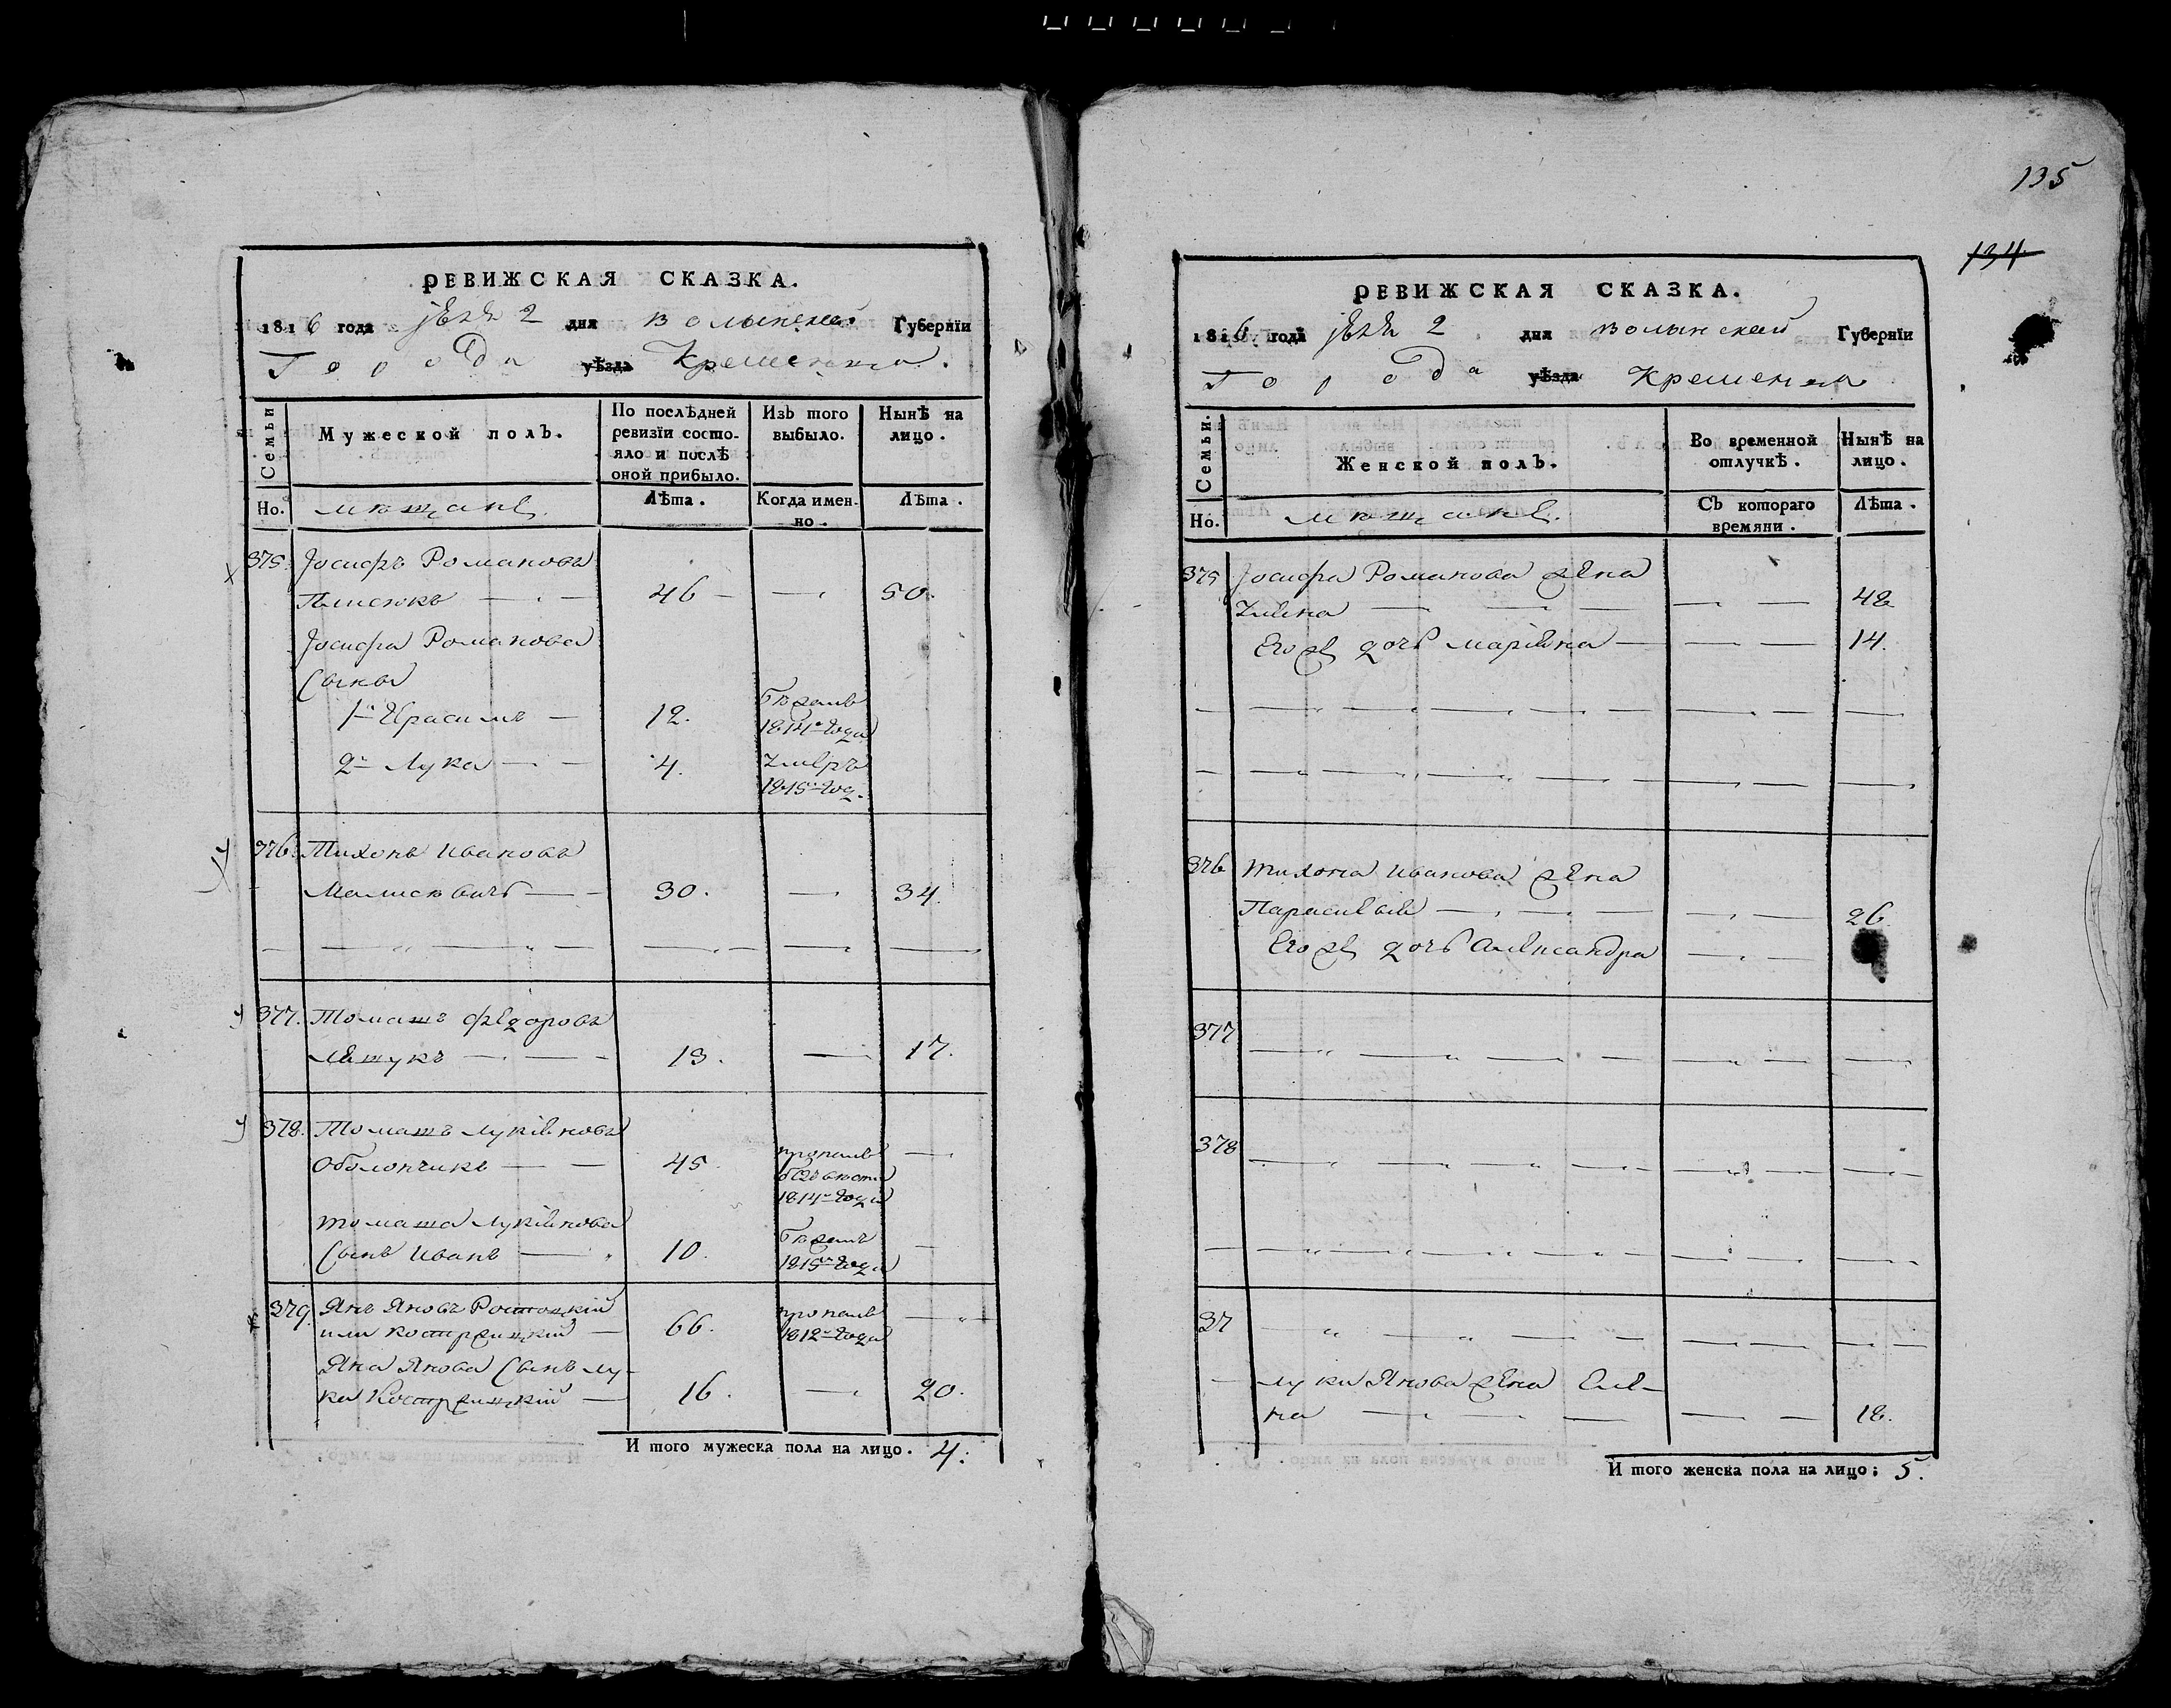 135
134
РЕВИЖСКАЯ СКАЗКА.
1816 года 2 дня Волынской Губернїи
Города уѣзда Кременца.
Семьи
Мужеской полъ.
По послѣдней ревизїи состо-
яло и послѣ оной прибыло.
Изъ того выбыло.
Нынѣ на лицо.
Но.
мещане
Лѣта.
Когда имен-
но.
Лѣта.
375. Іосифъ Романовъ
46 50.
Іосифа Романова
Сыны
1й Герасимъ 12. бежалъ
1814го года
2й Лука 4. умеръ
1815го год.
376. Тихонъ Ивановъ
30. 34.
377. Томашъ Федоровъ
13. 17.
378. Томашъ Лукіяновъ
Оболончикъ 45. пропалъ
безъ вести
1814го года
Томаша Лукіянова
Сынъ Иванъ 10. бежалъ
1815го года
379. Янъ Яновъ
или 66. пропалъ
1812го года
Яна Янова Сынъ Лу-
ка 16. 20.
И того мужеска пола на лицо. 4.
РЕВИЖСКАЯ СКАЗКА.
1816 года 2 дня Волынской Губернїи
Города уѣзда Кременца
Семьи.
Женской полъ.
Во временной отлучкѣ.
Нынѣ на лицо.
Но.
мещане
Съ котораго времяни.
Лѣта.
375 Іосифа Романова жена
48
Его же дочь Маріяна 14.
376 Тихона Иванова жена
26
Его же дочь Александра
377
378
37
Луки Янова жена Еле-
на 18.
И того женска пола на лицо: 5.